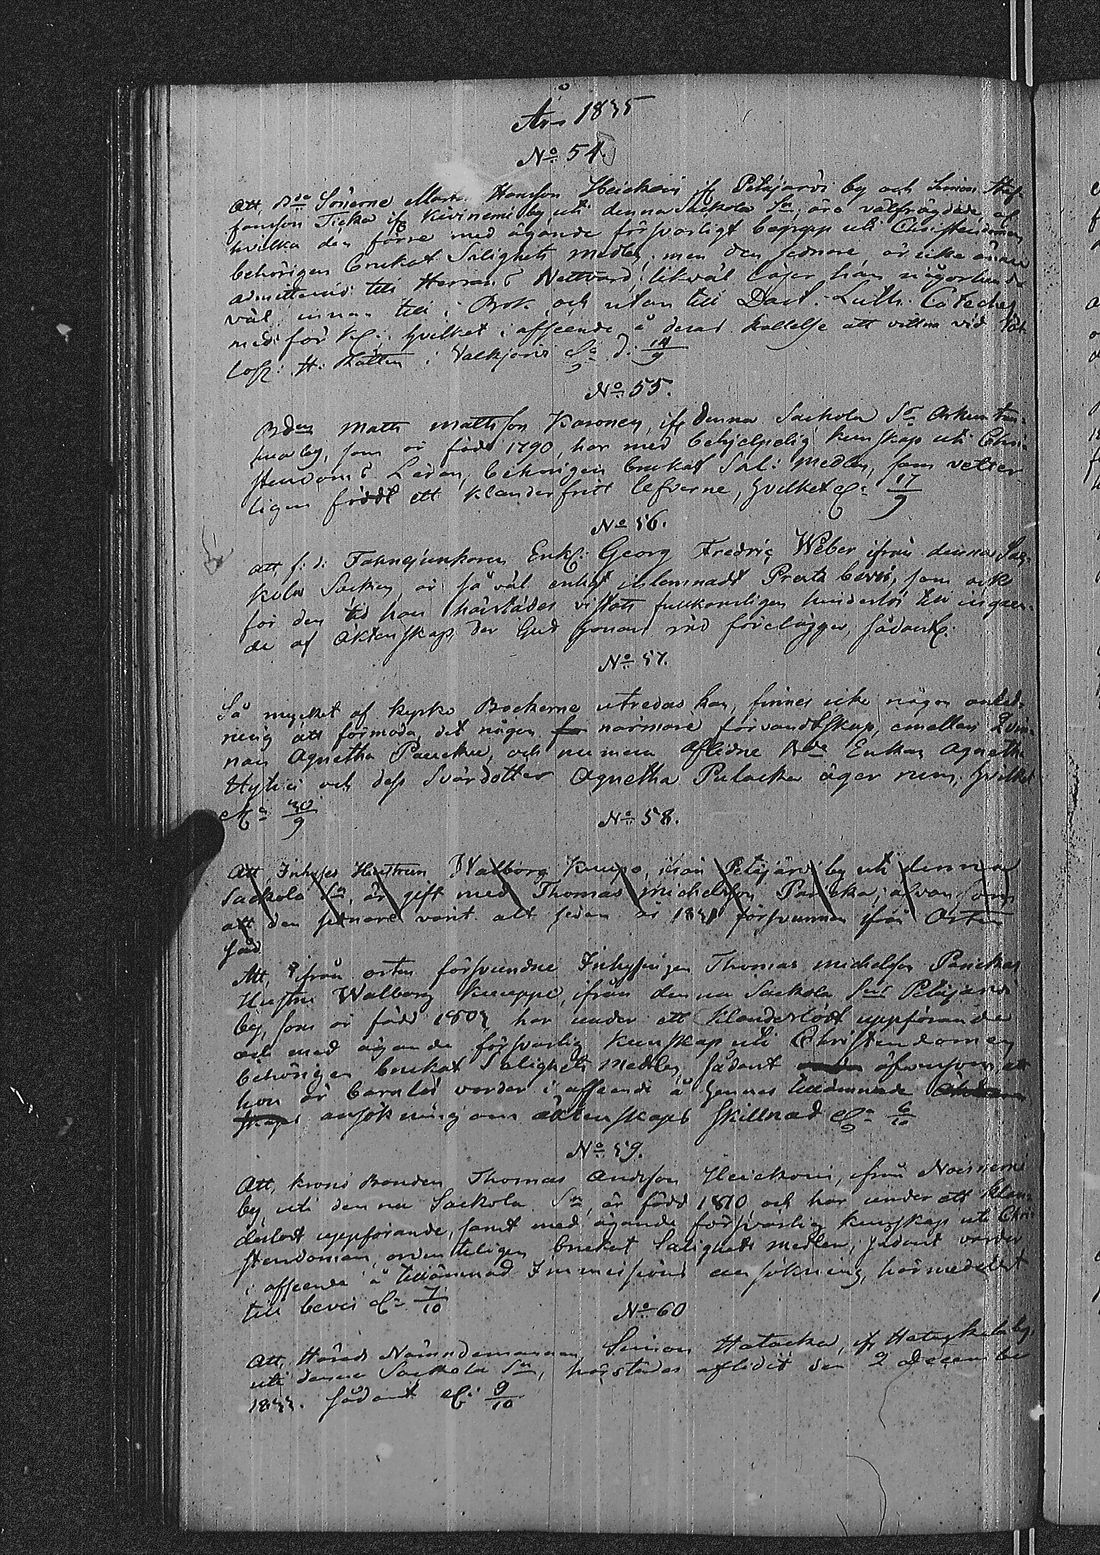 År 1835
No 54.
Att Bde Sönerne Matts Hansson Heickoin ifr Petäjärvi by och Simon Stef-
fansson Ticka ifr Kiviniemi by uti denna Sackola Sn, äro välfrägdade, af
hvilka den förre med ägande försvarligt begrepp uti Christendomen
behörigen brukat Salighets medlen, men den sednare är icke ännu
admitterad till Herrans Nattvard, likväl läser han någorlunda
väl innan till i Bok och utan till Doct. Luth. Catechés
med hvilket i afseende å deras kallelse att vittna vid
i Valkjärvi d. 14/9
No 55.
Bden Matts Mattsson Karonen, ifr denna Sackola Sn
by, som är född 1790, har med behjelpelig kunskap uti Chri-
stendoms Läran, behörigen brukat Sal: medlen, som vetter-
ligen fördt ett klanderfritt lefverne, hvilket &c 17/9
No 56.
Att f: d: Fahnejunkaren Enkl: Georg Fredric Weber ifrån denna Sac-
kola Socken, är så väl enligt Presta bevis, som ock
för den tid han härstädes vistats fullkomligen hinderlös till ingåen-
de af Äktenskap der Gud honom råd förelägger, sådant &c.
No 57.
Så mycket af kyrko Böckerne utredas kan, finnes icke någon anled-
ning att förmoda, det någon närmare förvandtskap, emellan Qvin-
nan Agnetha Paucku, och numera aflidne Bde Enkan Agnetha
Hytti och dess Svärdotter Agnetha Pulacka äger rum, hvilket
&c 30/9
No 58.
Att Inhyses Hustrun Walborg Kauppi, ifrån Petäjärvi by uti denna
Sackola Sn, är gift med Thomas Michelsson Paucka, äfvan som
att den sednare varit allt sedan år 1831 försvunnen ifrån Orten
såd
Att, ifrån orten försvundne Inhysingen Thomas Michelsson Pauckas
Hustru Walborg Kauppi, ifrån denna Sackola Sns Petäjärvi
by, som är född 1803 har under ett klanderlöst uppförande
och med ägande försvarlig kunskap uti Christendomen
behörigen brukat Salighets medlen, sådant äfvensom att
hon är barnlös varder i afseende å hennes tillämnade
ansökning om äktenskaps skillnad &c 6/10
No 59.
Att, krono Bonden Thomas Andersson Heickoin, ifrån
by uti denna Sackola Sn, är född 1810 och har under ett klan-
derlöst uppförande, samt med ägande försvarlig kunskap uti Chri-
stendomen, ordenteligen brukat Salighets medlen, sådant varder
i afseende å tillämnad Immissions ansökning, härmedelst
till bevis &c 7/10
No 60
Att, Härads Nämndemannen Simon Hatacka, ifr Hatackala by
uti denna Sackola Sn, härstädes aflidit den 2 December
1833. sådant &c: 9/10